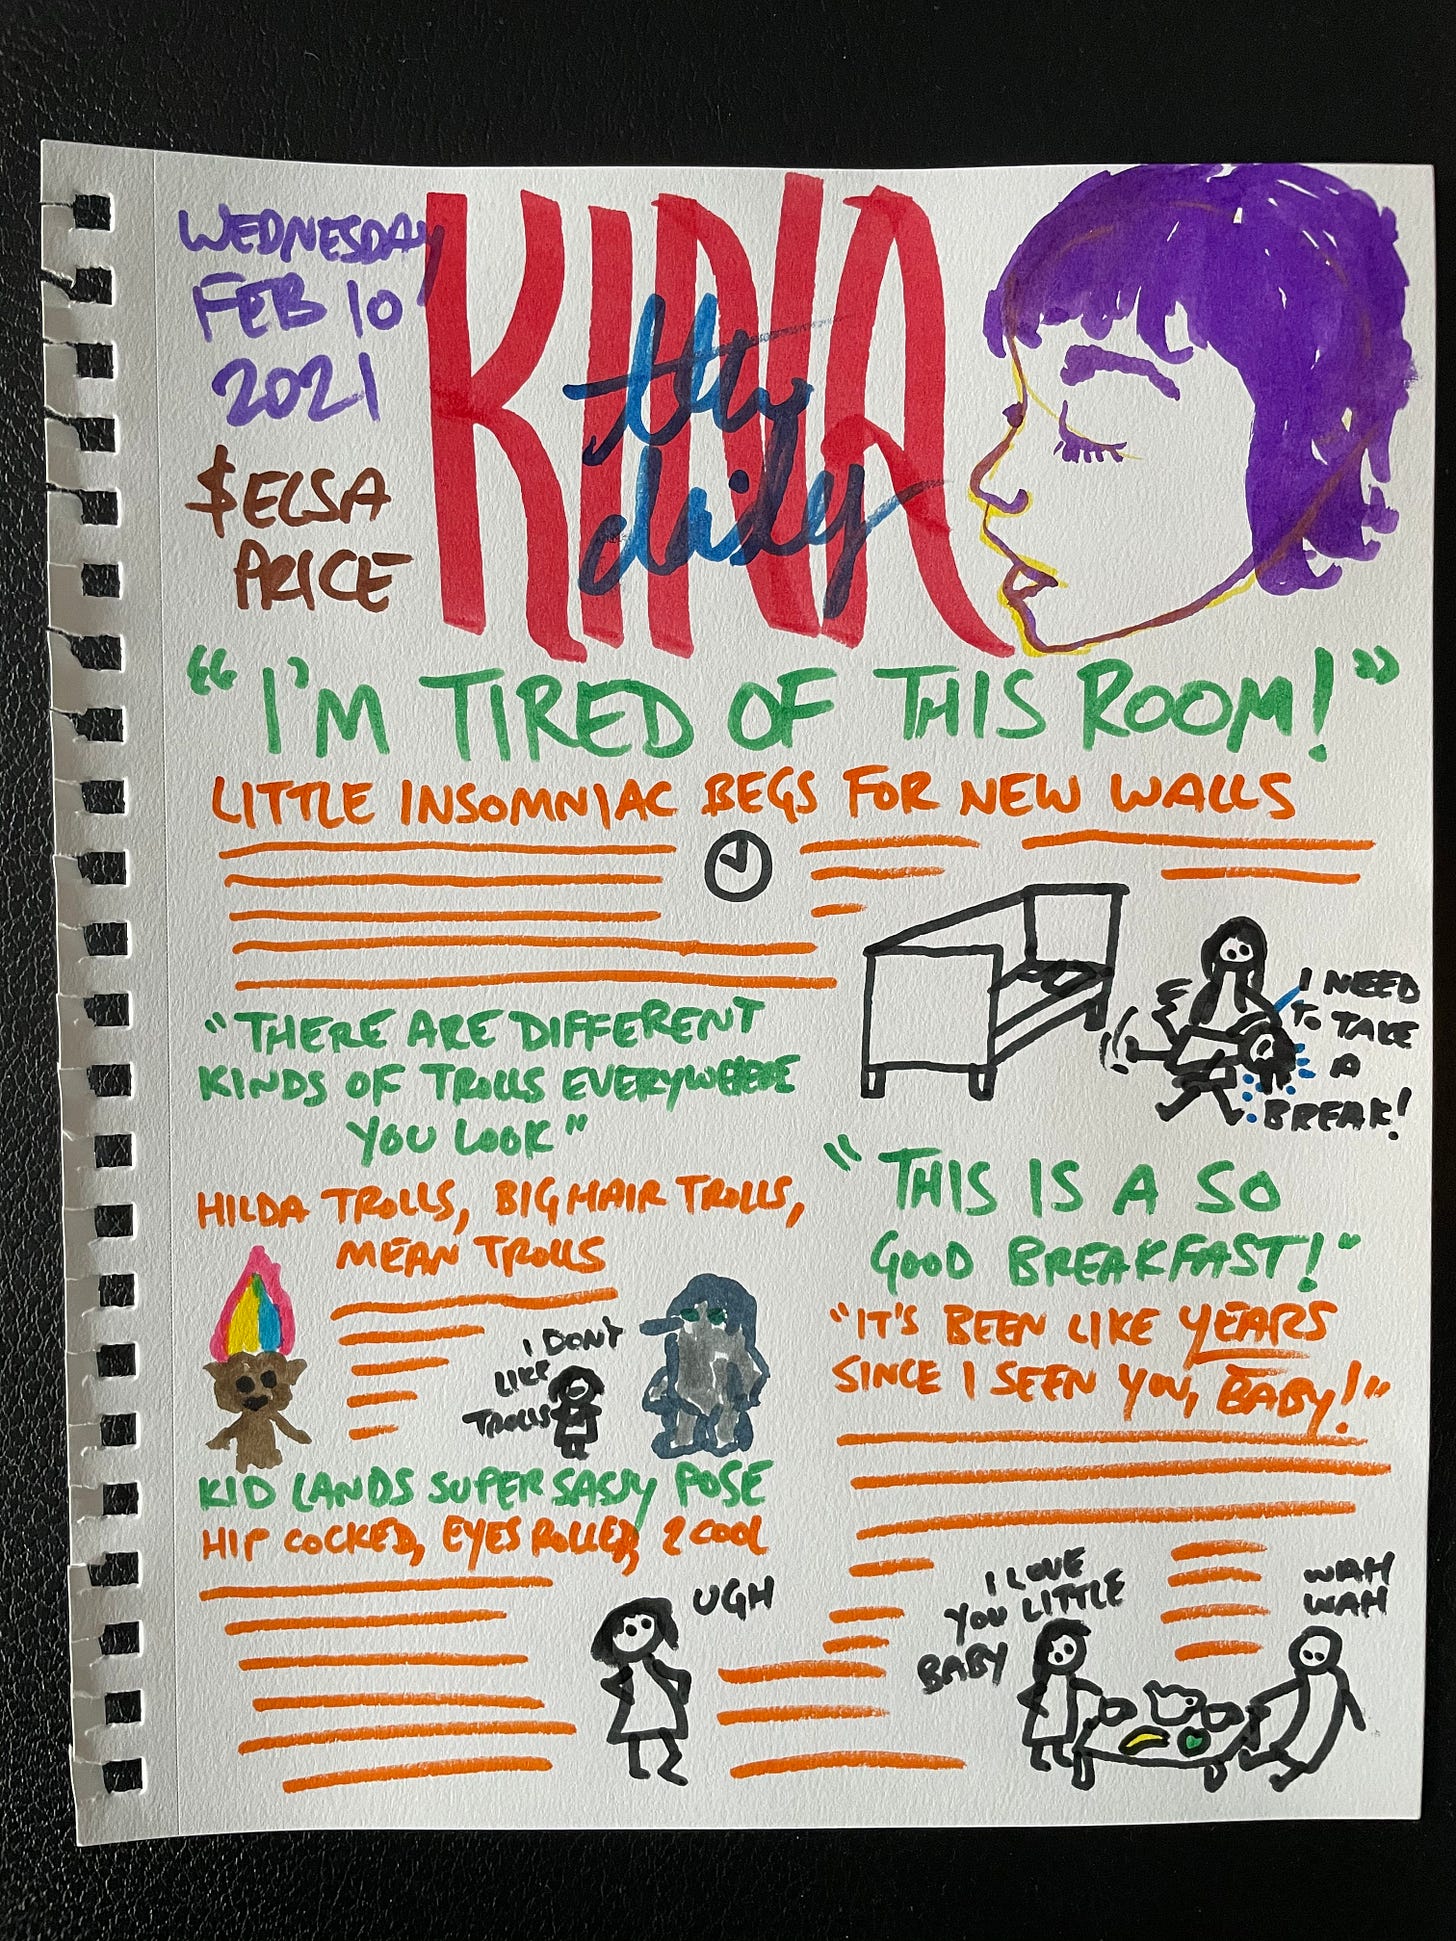 WEDNESDAY
FEB 10
2021
$ELSA
PRICE
the
daily
KINA
"I'M TIRED OF THIS ROOM!"
LITTLE INSOMNIAC BEGS FOR NEW WALLS
I NEED
TO TAKE
A
BREAK!
"THERE ARE DIFFERENT
KINDS OF TROLLS EVERYWHERE
YOU LOOK"
HILDA TROLLS, BIG HAIR TROLLS,
MEAN TROLLS
I DON'T
LIKE
TROLLS
KID LANDS SUPER SASSY POSE
HIP COCKED, EYES ROLLED, 2 COOL
UGH
"THIS IS A SO
GOOD BREAKFAST!"
"IT'S BEEN LIKE YEARS
SINCE I SEEN YOU, BABY!"
I LOVE
YOU LITTLE
BABY
WAH
WAH